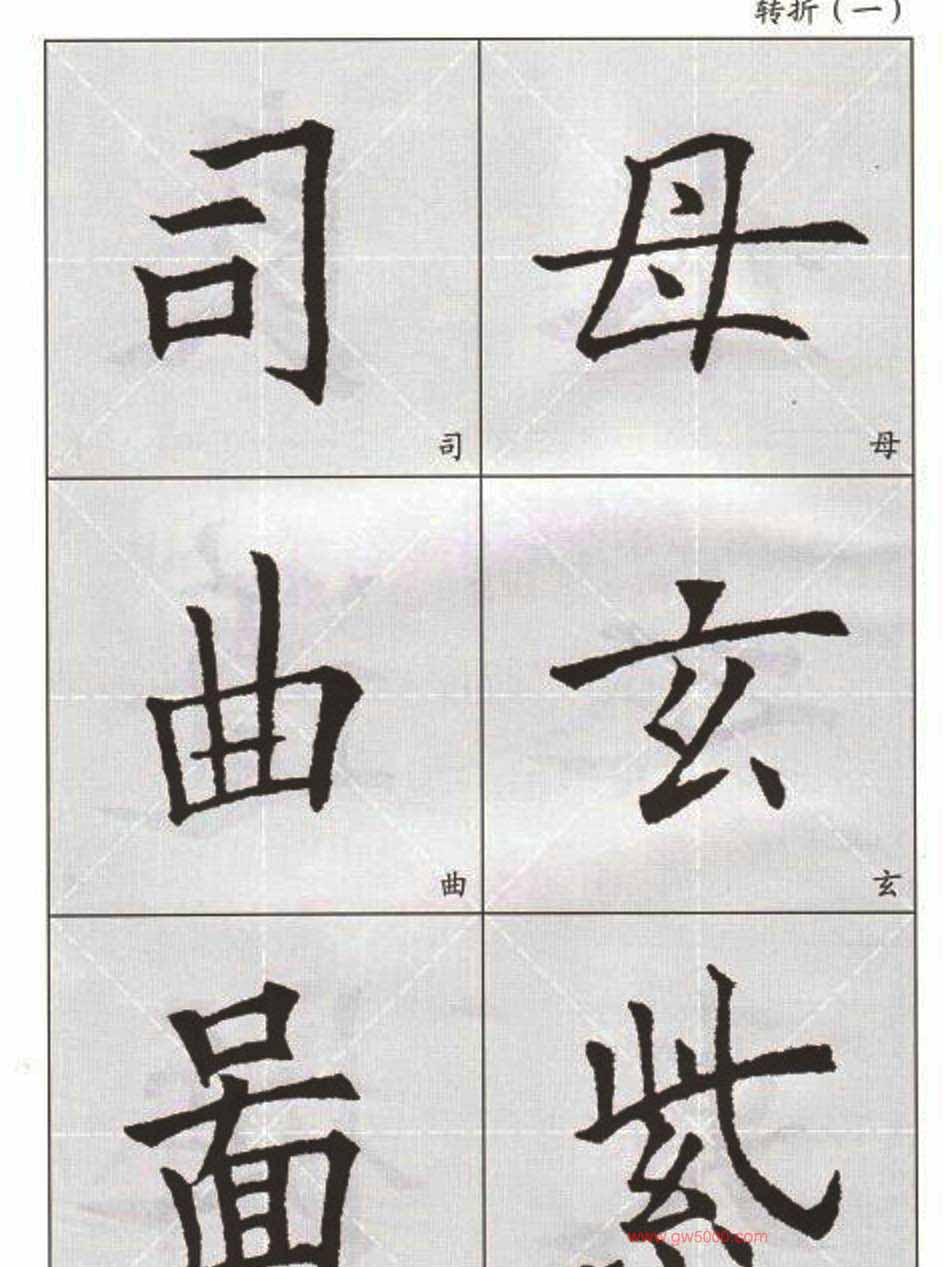 转折（一）
司 母
司 母
曲 玄
曲 玄
紫
www.gw5000.com